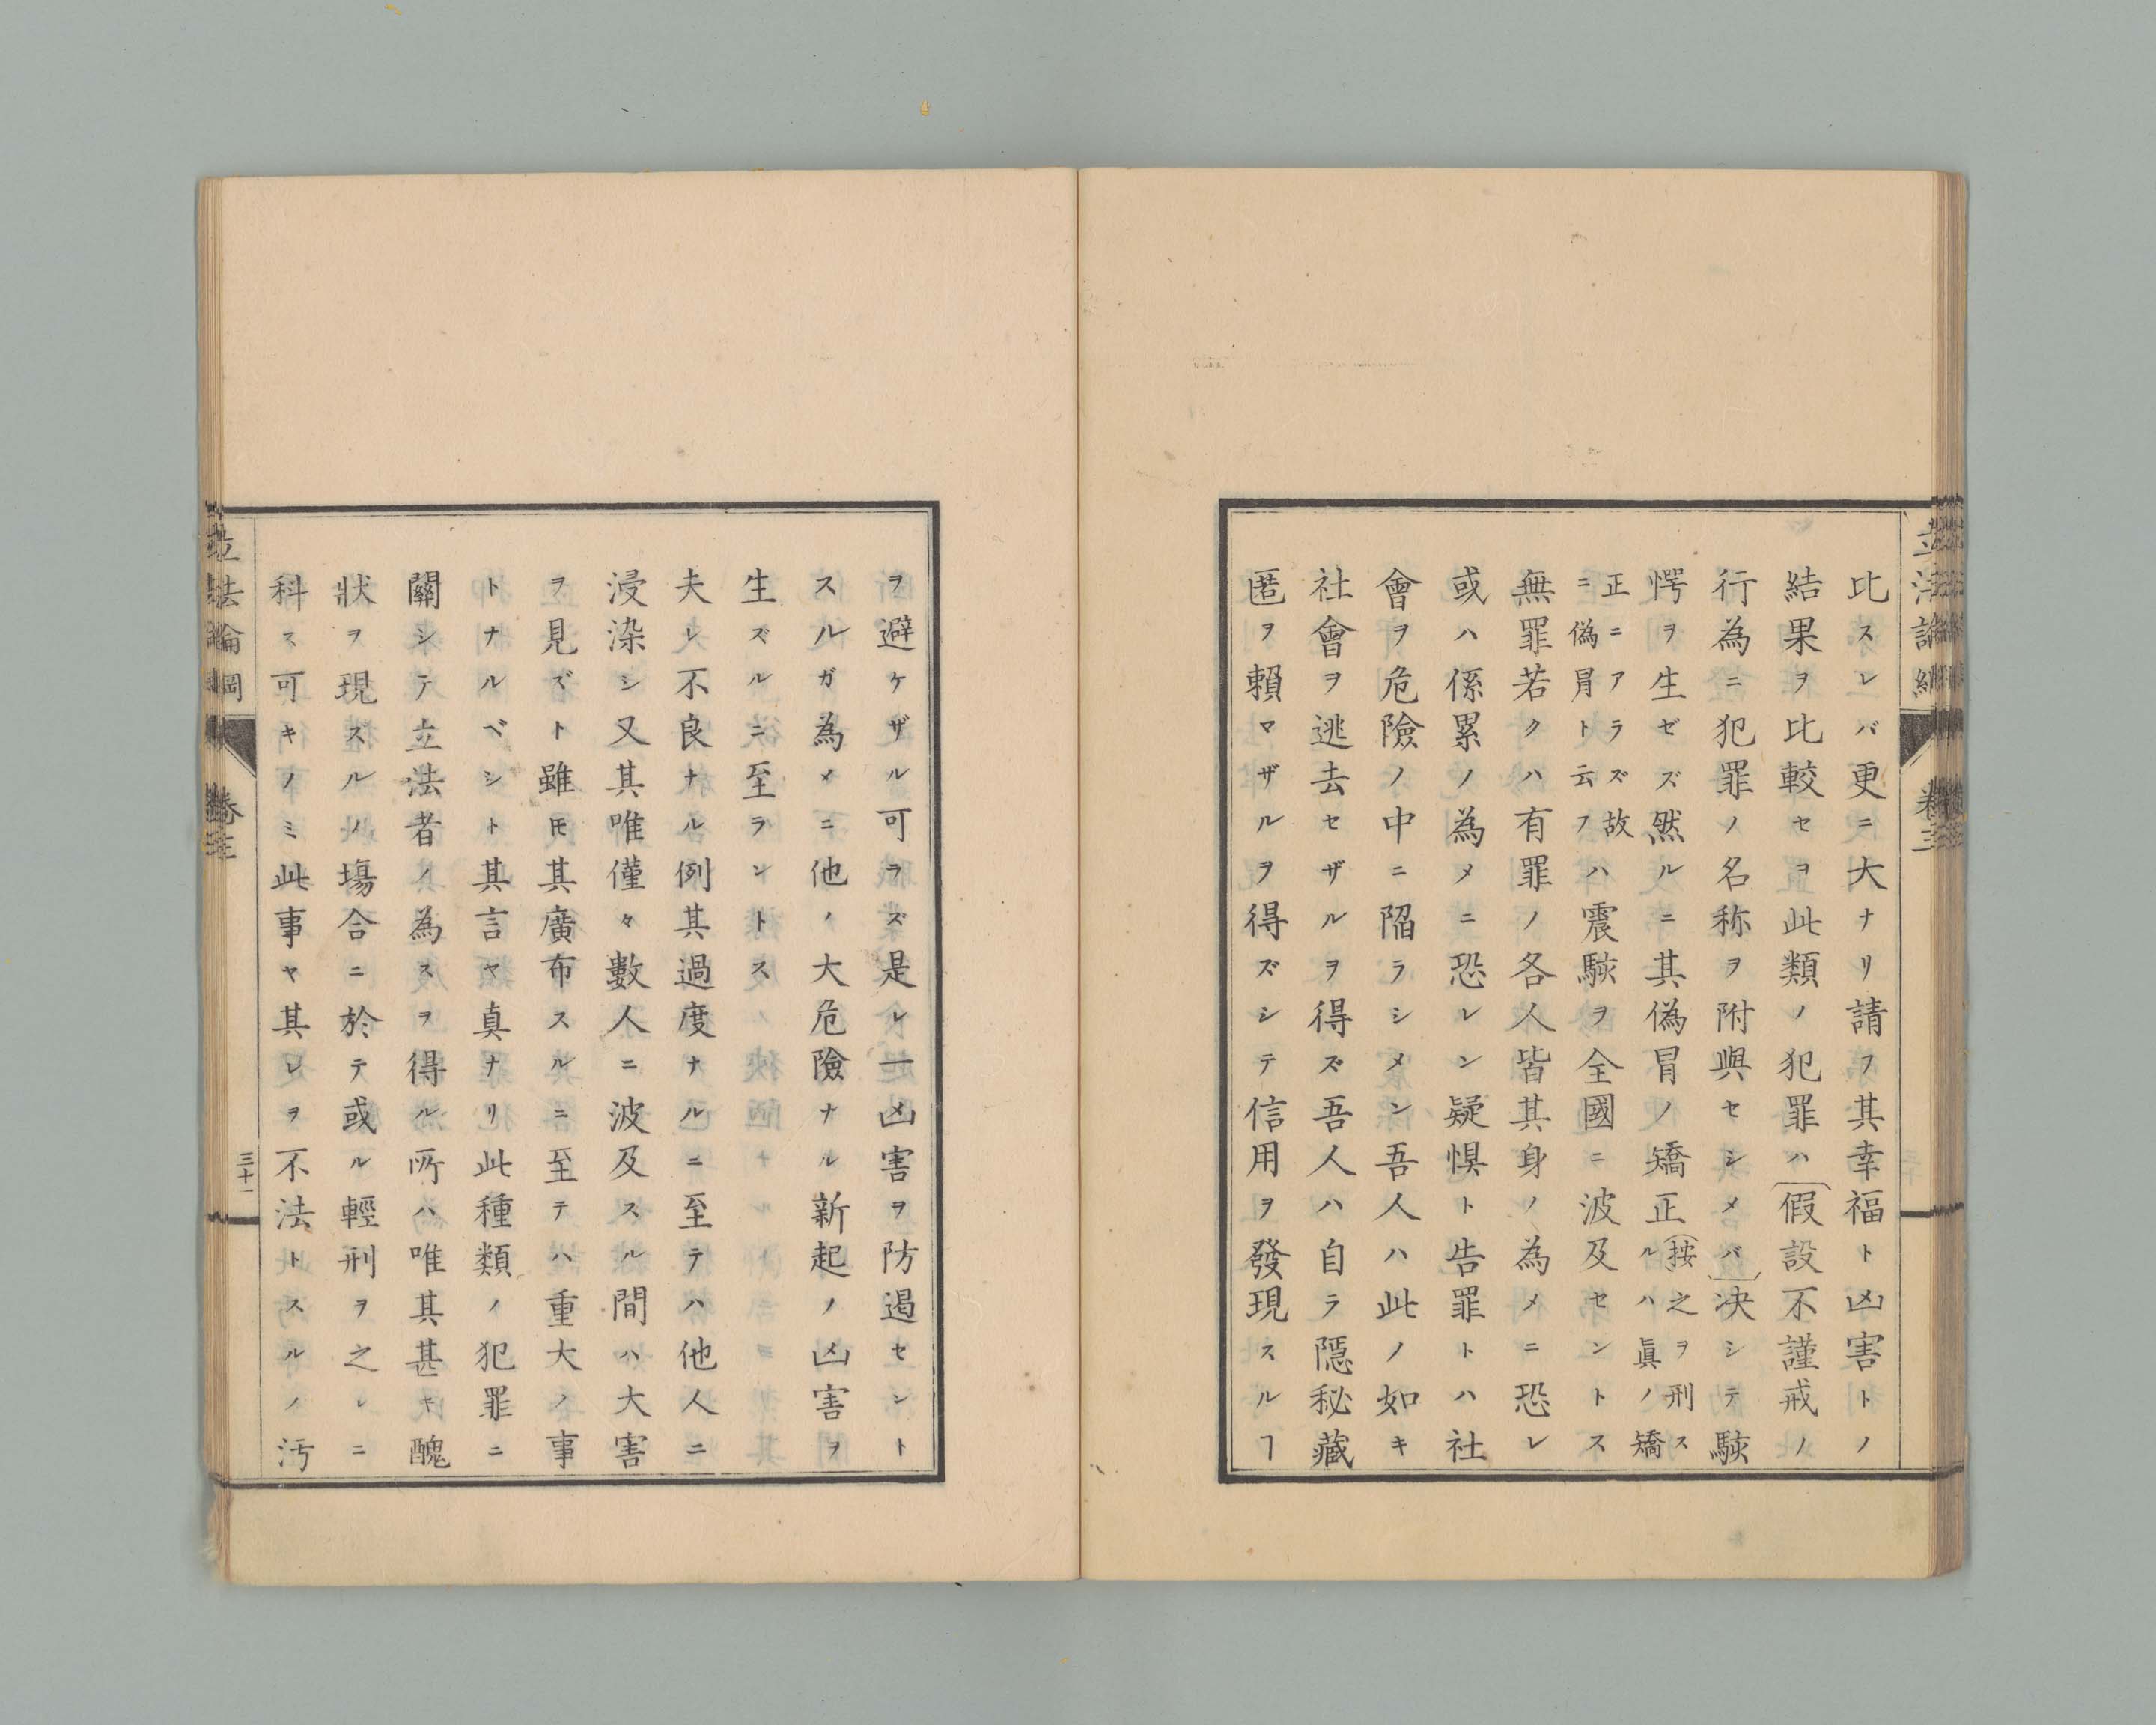 比スレバ更ニ大ナリ請フ其幸福ト凶害トノ
結果ヲ比較セヨ此類ノ犯罪ハ（假設不謹戒ノ
行為ニ犯罪ノ名称ヲ附與セシメバ）决シテ駭
愕ヲ生ゼズ然ルニ其偽冒ノ矯正（按之ヲ刑スルハ眞ノ矯
正ニアラズ故ニ偽冐ト云フハ震駭ヲ全國ニ波及セントス
無罪若クハ有罪ノ各人皆其身ノ為メニ恐レ
或ハ係累ノ為メニ恐レン疑惧ト告罪トハ社
會ヲ危險ノ中ニ陷ラシメン吾人ハ此ノ如キ
社會ヲ逃去セザルヲ得ズ吾人ハ自ラ隱秘藏
匿ヲ賴マザルヲ得ズシテ信用ヲ發現スルヿ
ヲ避ケザル可ラズ是レ一凶害ヲ防遏セント
スルガ為メニ他ノ大危險ナル新起ノ凶害ヲ
生ズルニ至ラントス
夫レ不良ナル例其過度ナルニ至テハ他人ニ
浸染シ又其唯僅々數人ニ波及スル間ハ大害
ヲ見ズト雖𪜈其廣布スルニ至テハ重大ノ事
トナルベシト其言ヤ真ナリ此種類ノ犯罪ニ
關シテ立法者ノ為スヲ得ル所ハ唯其甚キ醜
狀ヲ現ズルノ塲合ニ於テ或ル輕刑ヲ之レニ
科ス可キノミ此事ヤ其レヲ不法トスルノ汚
立法論綱
卷三
三十一